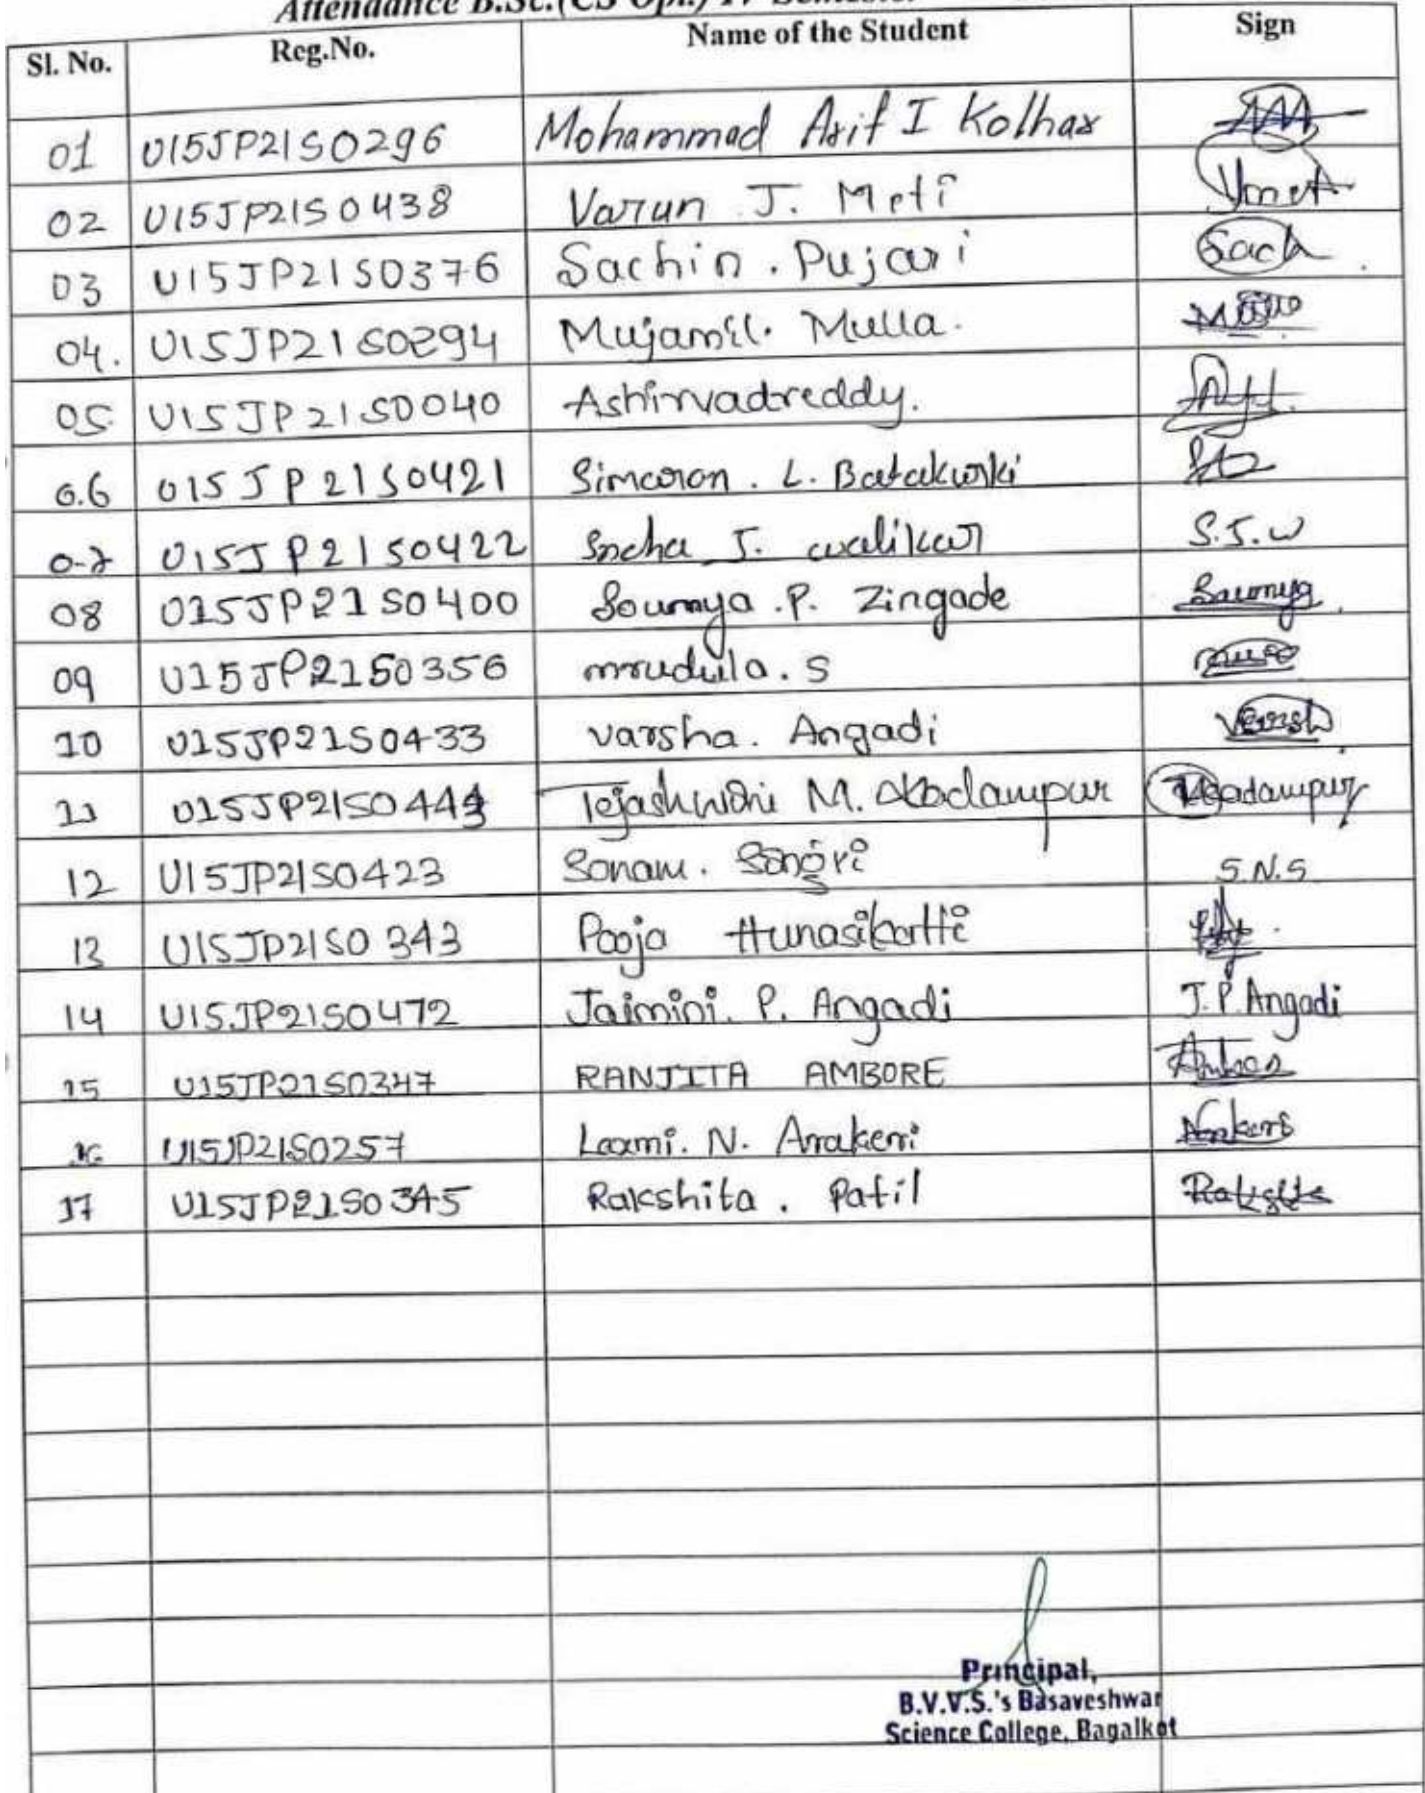 Attendance B.Sc.(CS Opt.) IV Semester
Sl. No. Reg.No. Name of the Student Sign
01 U15JP21S0296 Mohammad Arif I Kolhar
02 U15JP21S0438 Varun J. Meti
03 U15JP21S0376 Sachin . Pujari Sach
04. U15JP21S0294 Mujamil. Mulla.
05 U15JP21S0040 Ashirvadreddy.
0.6 U15JP21S0421 Simaran . L. Batakurki
0-7 U15JP21S0422 Sneha J. walikar S.J.W
08 U15JP21S0400 Soumya .P. Zingade Soumya
09 U15JP21S0356 mrudula . S
10 U15JP21S0433 varsha. Angadi Varsh
11 U15JP21S0444 Tejashwini M. Kadampur Kadampur
12 U15JP21S0423 Sonam. S.N.S
13 U15JP21S0343 Pooja Hunasikatti
14 U15JP21S0472 Jaimini. P. Angadi J.P.Angadi
15 U15JP21S0347 RANJITA AMBORE
16 U15JP21S0257 Laxmi. N. Arakeri
17 U15JP21S0345 Rakshita . Patil
Principal,
B.V.V.S.'s Basaveshwar
Science College, Bagalkot